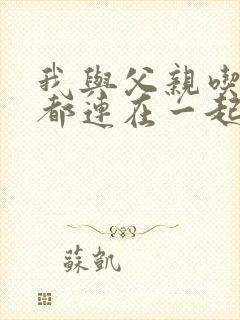 我與父親喫
都連在一起
蘇凱